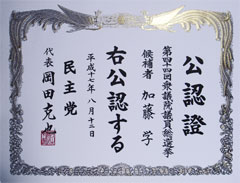 公認證
第四十四回衆議院議員総選挙
候補者 加藤 学
右公認する
平成十七年八月十二日
民主党
代表 岡田克也